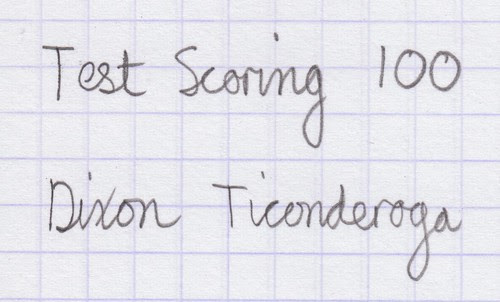 Test Scoring 100
Dixon Ticonderoga